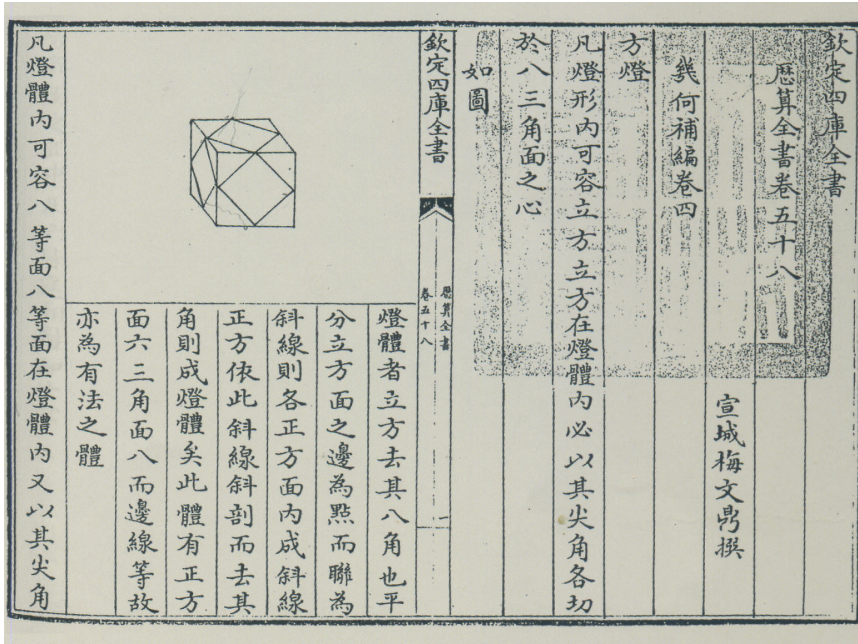 欽定四庫全書
厯算全書卷五十八
宣城梅文鼎撰
幾何補編卷四
方燈
凡燈形內可容立方立方在燈體內必以其尖角各切
於八三角面之心
如圖
欽定四庫全書
厯算全書
卷五十八
一
燈體者立方去其八角也平
分立方面之邊為㸃而聯為
斜線則各正方面內成斜線
正方依此斜線斜剖而去其
角則成燈體矣此體有正方
面六三角面八而邊線等故
亦為有法之體
凡燈體內可容八等面八等面在燈體內又以其尖角